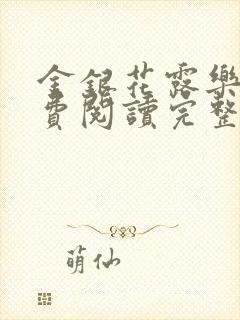 金銀花露樂
費閱讀完整
萌仙